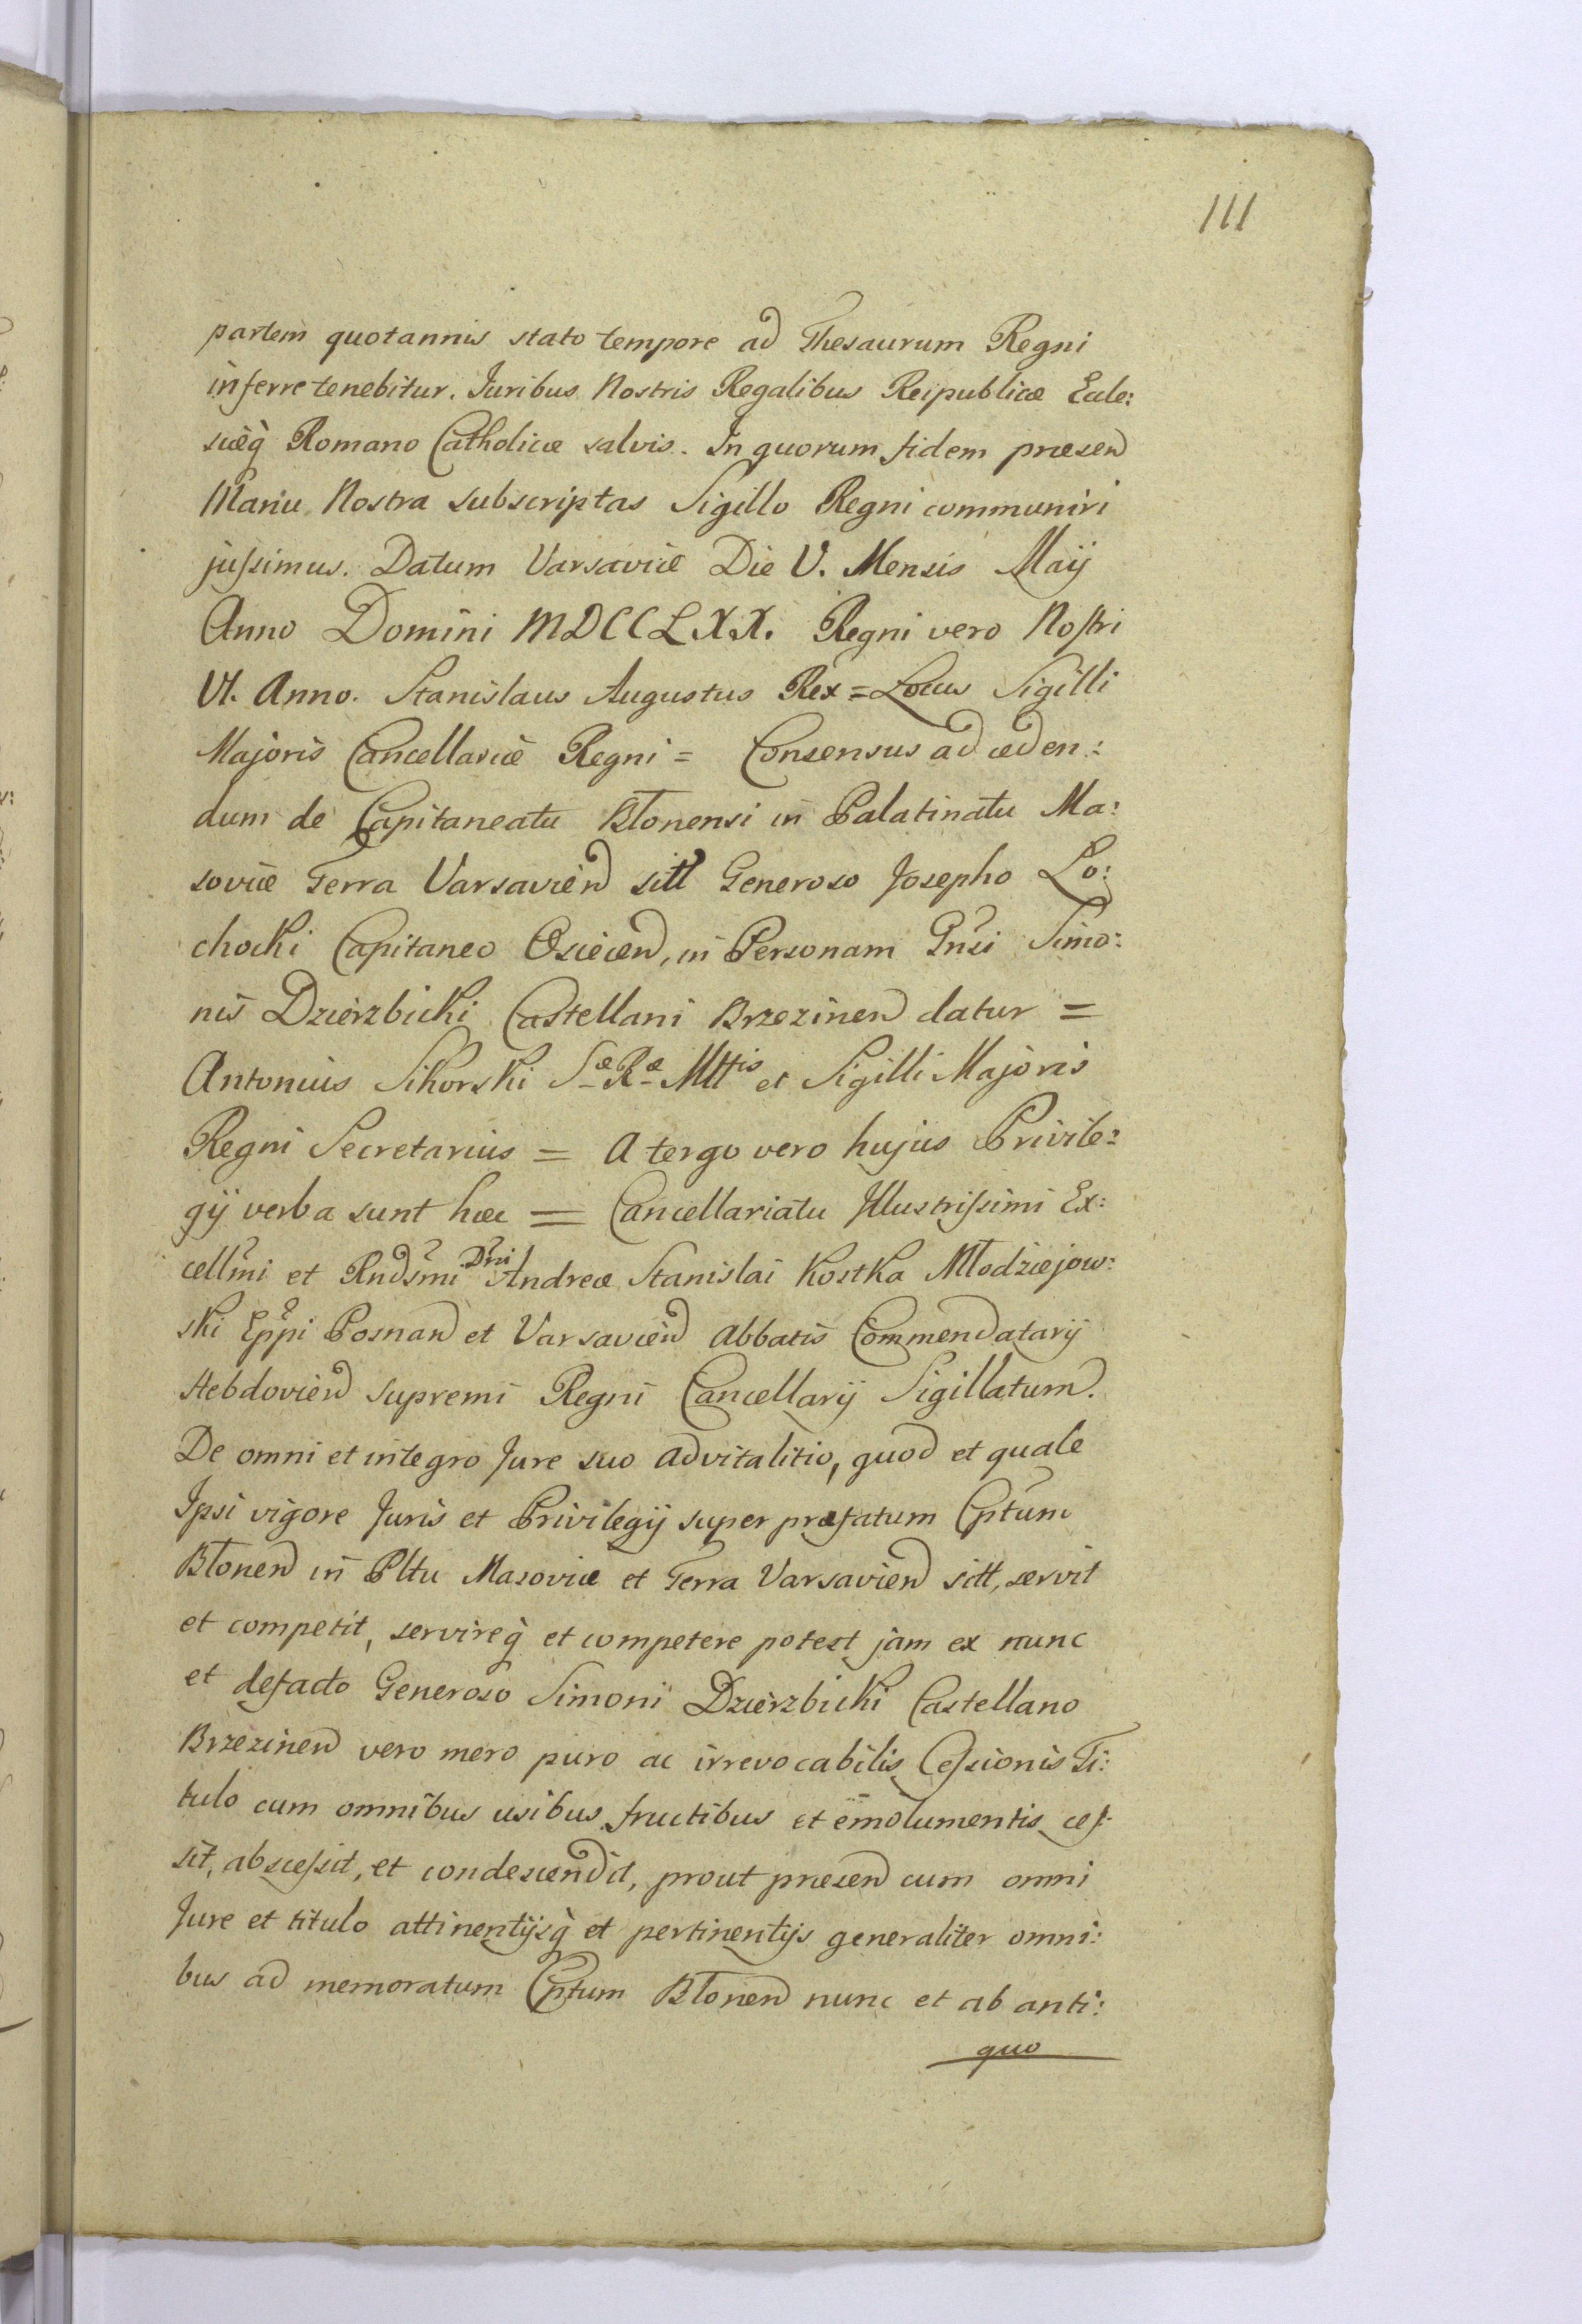 111
partem quotannis stato tempore ad Thesaurum Regni
inferre tenebitur. Juribus Nostris Regalibus Reipublicæ Eccle:
siæq̀ Romano Catholicæ salvis. In quorum fidem præsen̄
Manu Nostra subscriptas Sigillo Regni communiri
jussimus. Datum Varsaviæ Die V. Mensis Maij
Anno Domini MDCCLXX. Regni vero Nostri
VI. Anno. Stanislaus Augustus Rex = Locus Sigilli
Majoris Cancellariæ Regni = Consensus ad ceden:
dum de Capitaneatu Błonensi in Palatinatu Ma:
soviæ Terra Varsavien̄ sitt Generoso Josepho Lo:
chocki Capitaneo Osiecen̄, in Personam Gnsi Simo:
nis Dzierzbicki Castellani Brzezinen̄ datur =
Antonius Sikorski Sæ Ræ Mttis et Sigilli Majoris
Regni Secretarius = A tergo vero hujus Privile:
gij verba sunt hæc = Cancellariatu Illustrissimi Ex:
cellmi et Rndsmi Dni Andreæ Stanislai Kostka Młodziejow:
ski Eppi Posnan̄ et Varsavien̄ Abbatis Commendatarij
Hebdovien̄ supremi Regni Cancellarij Sigillatum.
De omni et integro Jure suo advitalitio, quod et quale
Ipsi vigore Juris et Privilegij super præfatum Cptum
Błonen̄ in Pltu Masoviæ et Terra Varsavien̄ sitt, servit
et competit, servireq̀ et competere potest jam ex nunc
et defacto Generoso Simoni Dzierzbicki Castellano
Brzezinen̄ vero mero puro ac irrevocabilis Cessionis Ti:
tulo cum omnibus usibus fructibus et emolumentis ces:
sit, abscessit, et condescendit, prout præsen̄ cum omni
Jure et titulo attinentijsq̀ et pertinentijs generaliter omni:
bus ad memoratum Cptum Błonen̄ nunc et ab anti:
quo